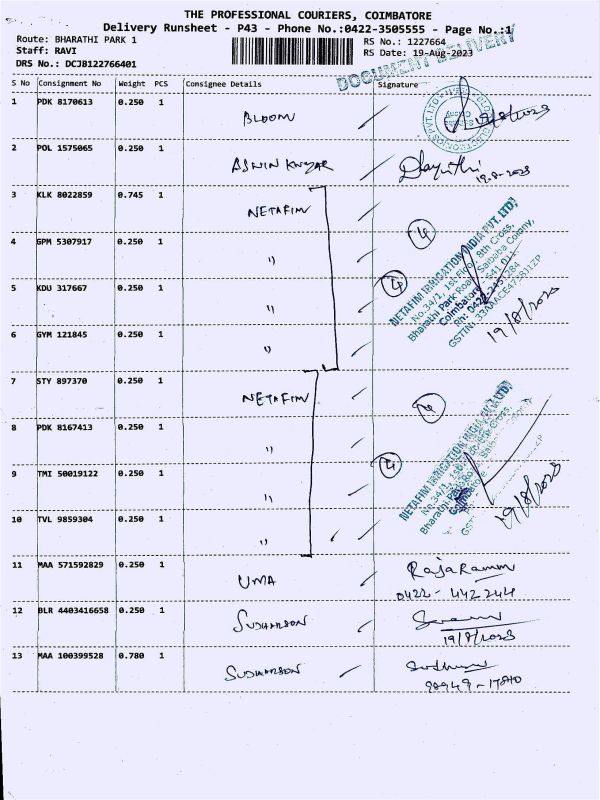 THE PROFESSIONAL COURIERS, COIMBATORE
Delivery Runsheet - P43 - Phone No.:0422-3505555 - Page No.:1
Route: BHARATHI PARK 1
RS No.: 1227664
Staff: RAVI
RS Date: 19-Aug-2023
DRS No.: DCJB122766401
DOCUMENT DELIVERY
S No Consignment No Weight PCS Consignee Details Signature
1 PDK 8170613 0.250 1 BLOOM 19/8/2023
2 POL 1575065 0.250 1 ASWIN KUMAR 19.8.2023
3 KLK 8022859 0.745 1 NETAFIM
4 GPM 5307917 0.250 1 〃 4
5 KDU 317667 0.250 1 〃 4
6 GYM 121845 0.250 1 〃
NETAFIM IRRIGATION INDIA PVT. LTD.
No.34/2, 1st Floor, 8th Cross,
Bharathi Park Road, Saibaba Colony,
Coimbatore - 641 011
19/8/2023
7 STY 897370 0.250 1 NETAFIM
8 PDK 8167413 0.250 1 〃
9 TMI 50019122 0.250 1 〃 4
10 TVL 9859304 0.250 1 〃
NETAFIM IRRIGATION INDIA PVT. LTD.
19/8/2023
11 MAA 571592829 0.250 1 UMA RajaRamm
0422 - 442244
12 BLR 4403416658 0.250 1 SUDHARSON
19/8/2023
13 MAA 100399528 0.780 1 SUDHARSON